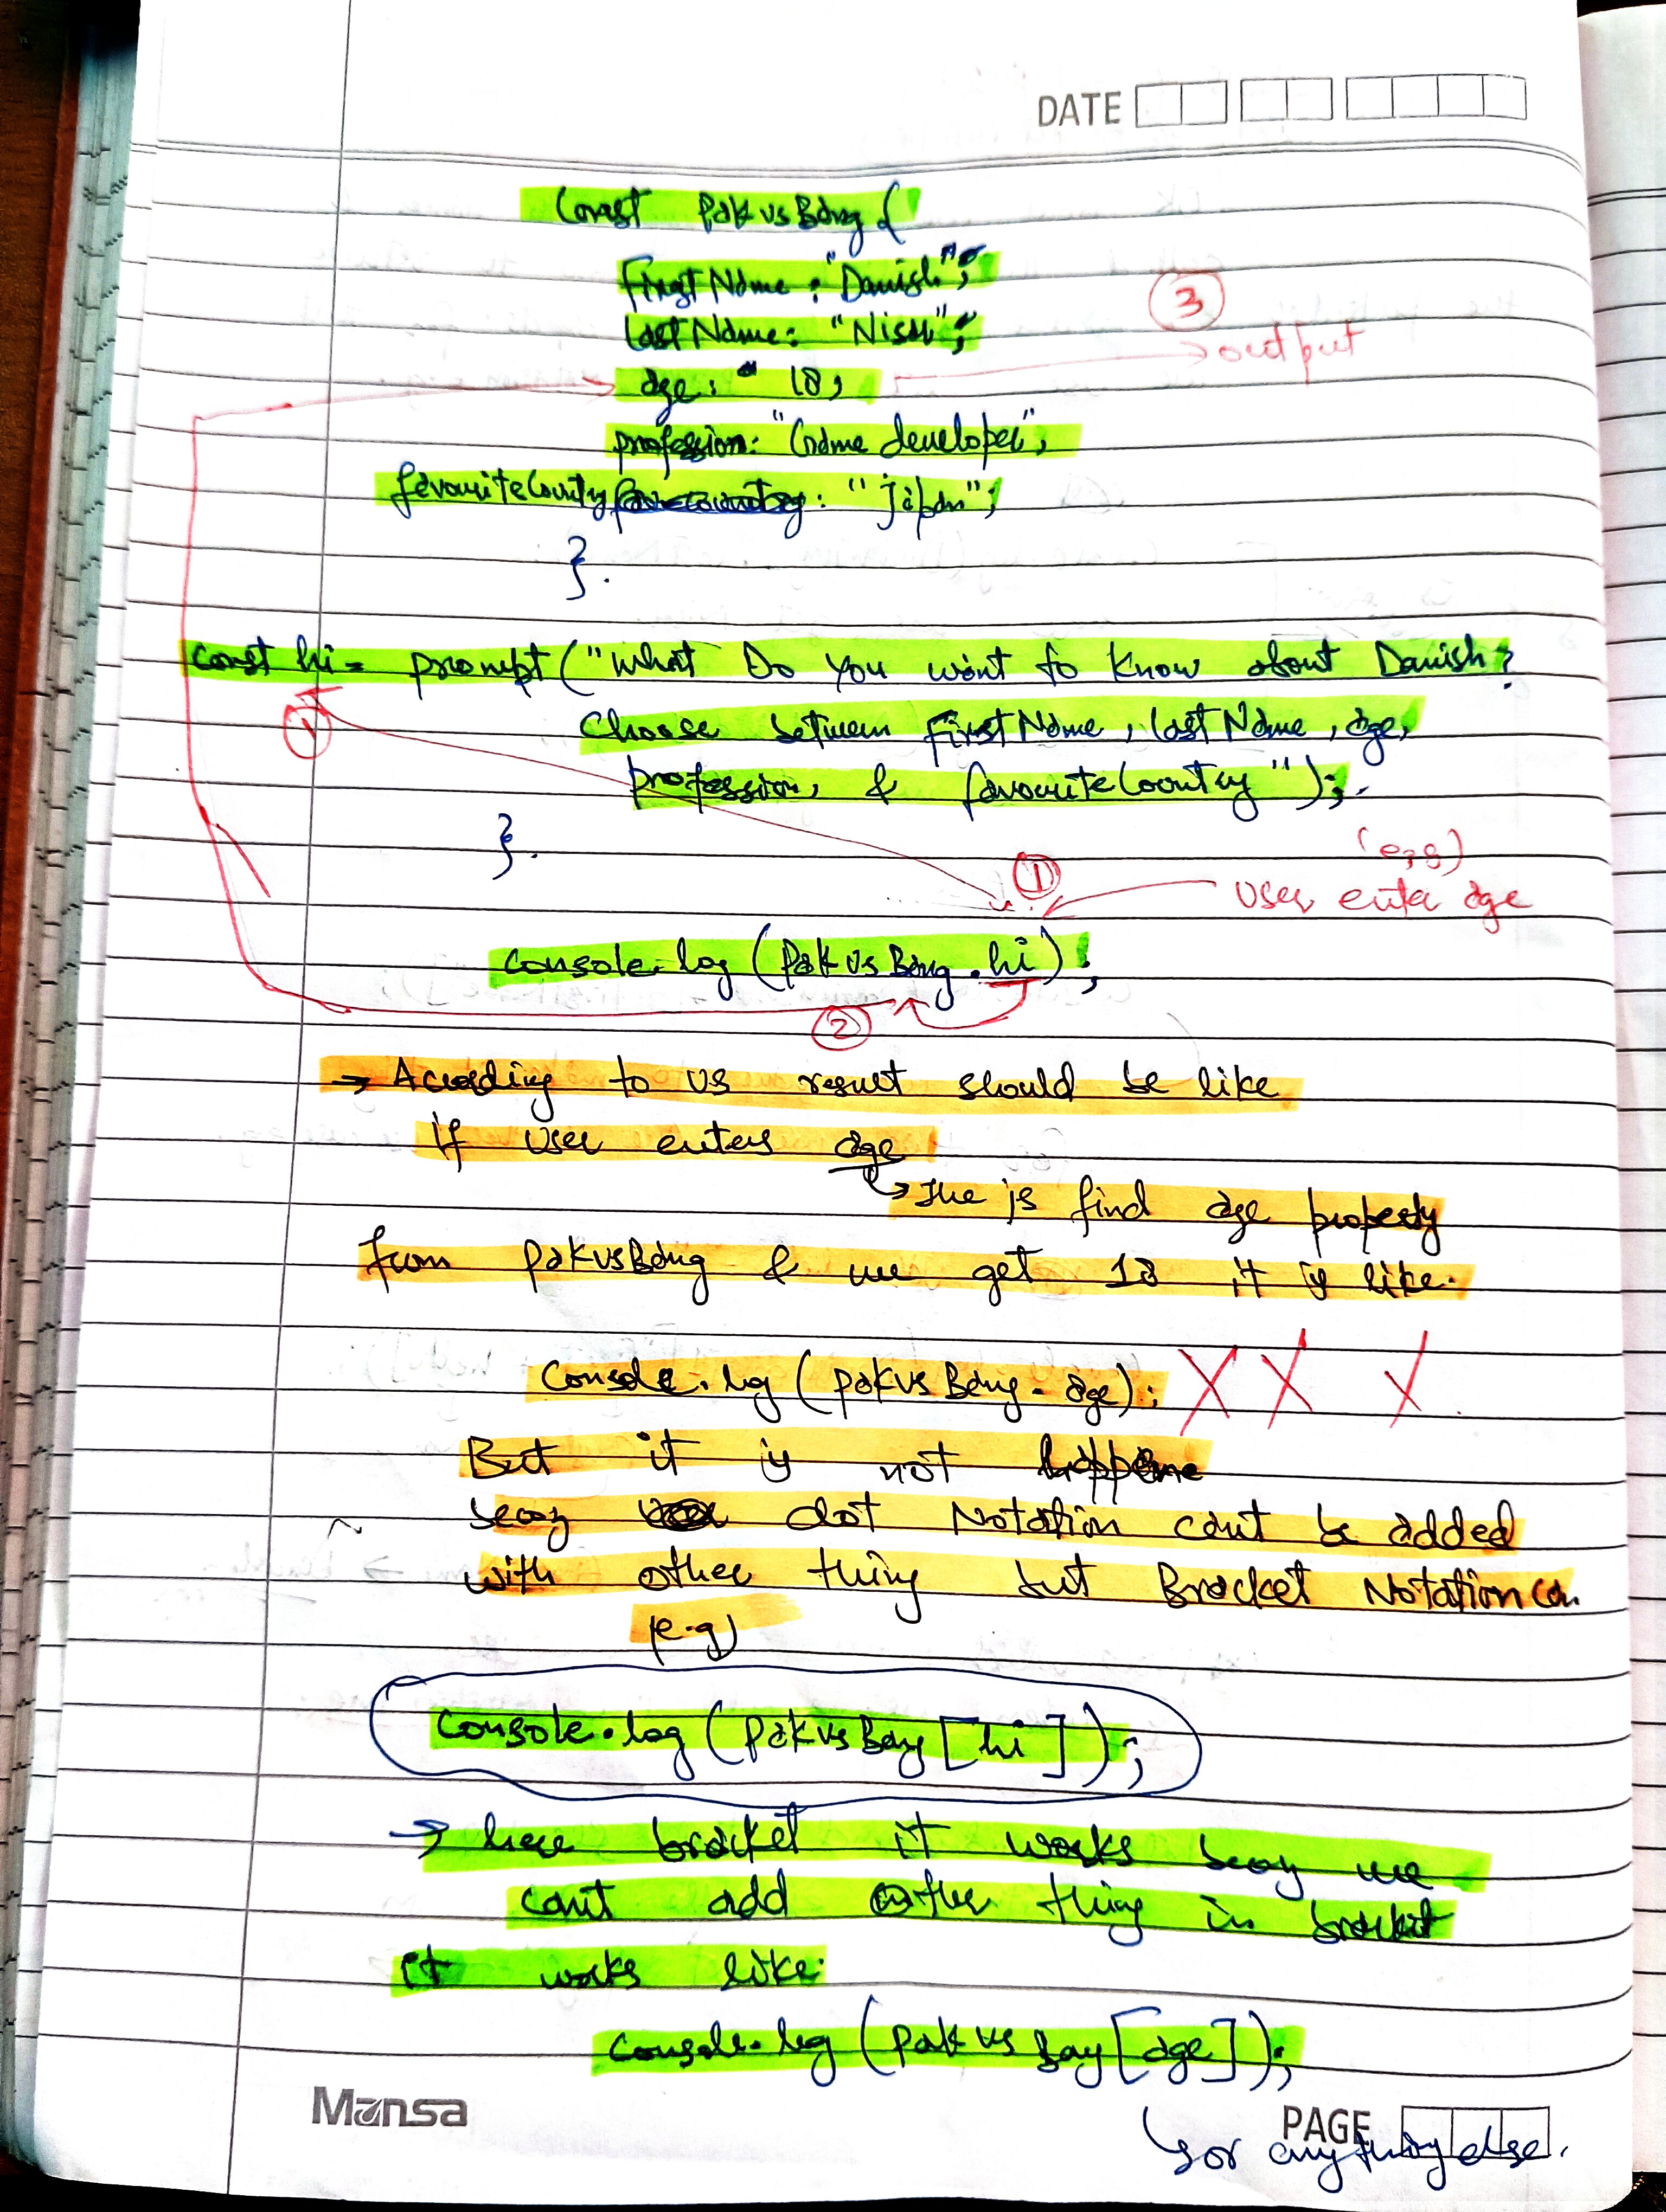 DATE
Const PakvsBang {
FirstName : "Danish",
lastName : "Nisar",
age : 18,
③
→ output
profession: "Game developer",
favouriteCountry : "japan",
}.
const hi = prompt ("What Do You want to Know about Danish?
①
Choose between firstName, lastName, age,
profession, & favouriteCountry");
}.
①
(e,g)
User enter age
console.log (PakvsBang.hi);
②
→ According to us result should be like
If user enters age
↳ the js find age property
from pakvsBang & we get 18 it is like.
Console.log (pakvsBang.age); X X X
But it is not happene
becoz dot Notation cant be added
with other thing but Bracket Notation can
(e.g)
console.log (PakvsBang [hi]);
→ here bracket it works becoz we
cant add other thing in bracket
it works like
console.log (PakvsBang [age]);
↳ or anything else.
Mansa
PAGE